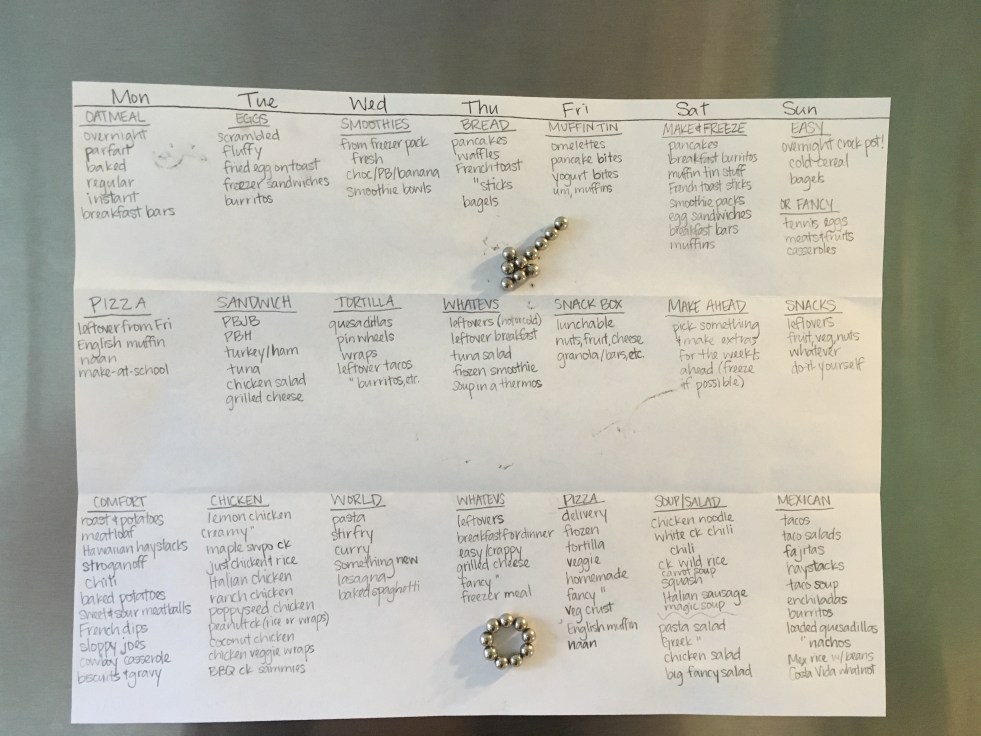 Mon Tue Wed Thu Fri Sat Sun
OATMEAL
overnight
parfait
baked
regular
instant
breakfast bars
EGGS
scrambled
fluffy
fried egg on toast
freezer sandwiches
burritos
SMOOTHIES
from freezer pack
fresh
choc/PB/banana
smoothie bowls
BREAD
pancakes
waffles
French toast
" sticks
bagels
MUFFIN TIN
omelettes
pancake bites
yogurt bites
uni, muffins
MAKE & FREEZE
pancakes
breakfast burritos
muffin tin stuff
French toast sticks
smoothie packs
egg sandwiches
breakfast bars
muffins
EASY
overnight crock pot!
cold cereal
bagels
OR FANCY
tennis eggs
meats & fruits
casseroles
PIZZA
leftover from Fri
English muffin
naan
make-at-school
SANDWICH
PBJB
PBH
turkey/ham
tuna
chicken salad
grilled cheese
TORTILLA
quesadillas
pinwheels
wraps
leftover tacos
" burritos, etc.
WHATEVS
leftovers (hot or cold)
leftover breakfast
tuna salad
frozen smoothie
Soup in a thermos
SNACK BOX
lunchable
nuts, fruit, cheese
granola/bars, etc.
MAKE AHEAD
pick something
& make extras
for the week
ahead (freeze
if possible)
SNACKS
leftovers
fruit, veg, nuts
whatever
do-it-yourself
COMFORT
roast & potatoes
meatloaf
Hawaiian haystacks
stroganoff
chili
baked potatoes
sweet & sour meatballs
French dips
sloppy joes
cowboy casserole
biscuits & gravy
CHICKEN
lemon chicken
creamy "
maple ck
just chicken & rice
Italian chicken
ranch chicken
poppyseed chicken
peanut ck (rice or wraps)
coconut chicken
chicken veggie wraps
BBQ ck sammies
WORLD
pasta
stirfry
curry
Something new
lasagna
baked spaghetti
WHATEVS
leftovers
breakfast for dinner
easy/crappy
grilled cheese
fancy "
freezer meal
PIZZA
delivery
frozen
tortilla
veggie
homemade
fancy "
veg crust
English muffin
naan
SOUP/SALAD
chicken noodle
white ck chili
chili
ck wild rice
carrot soup
squash
Italian sausage
magic soup
pasta salad
Greek "
chicken salad
big fancy salad
MEXICAN
tacos
taco salads
fajitas
haystacks
taco soup
enchiladas
burritos
loaded quesadillas
" nachos
Mex rice w/ beans
Costa Vida whatnot